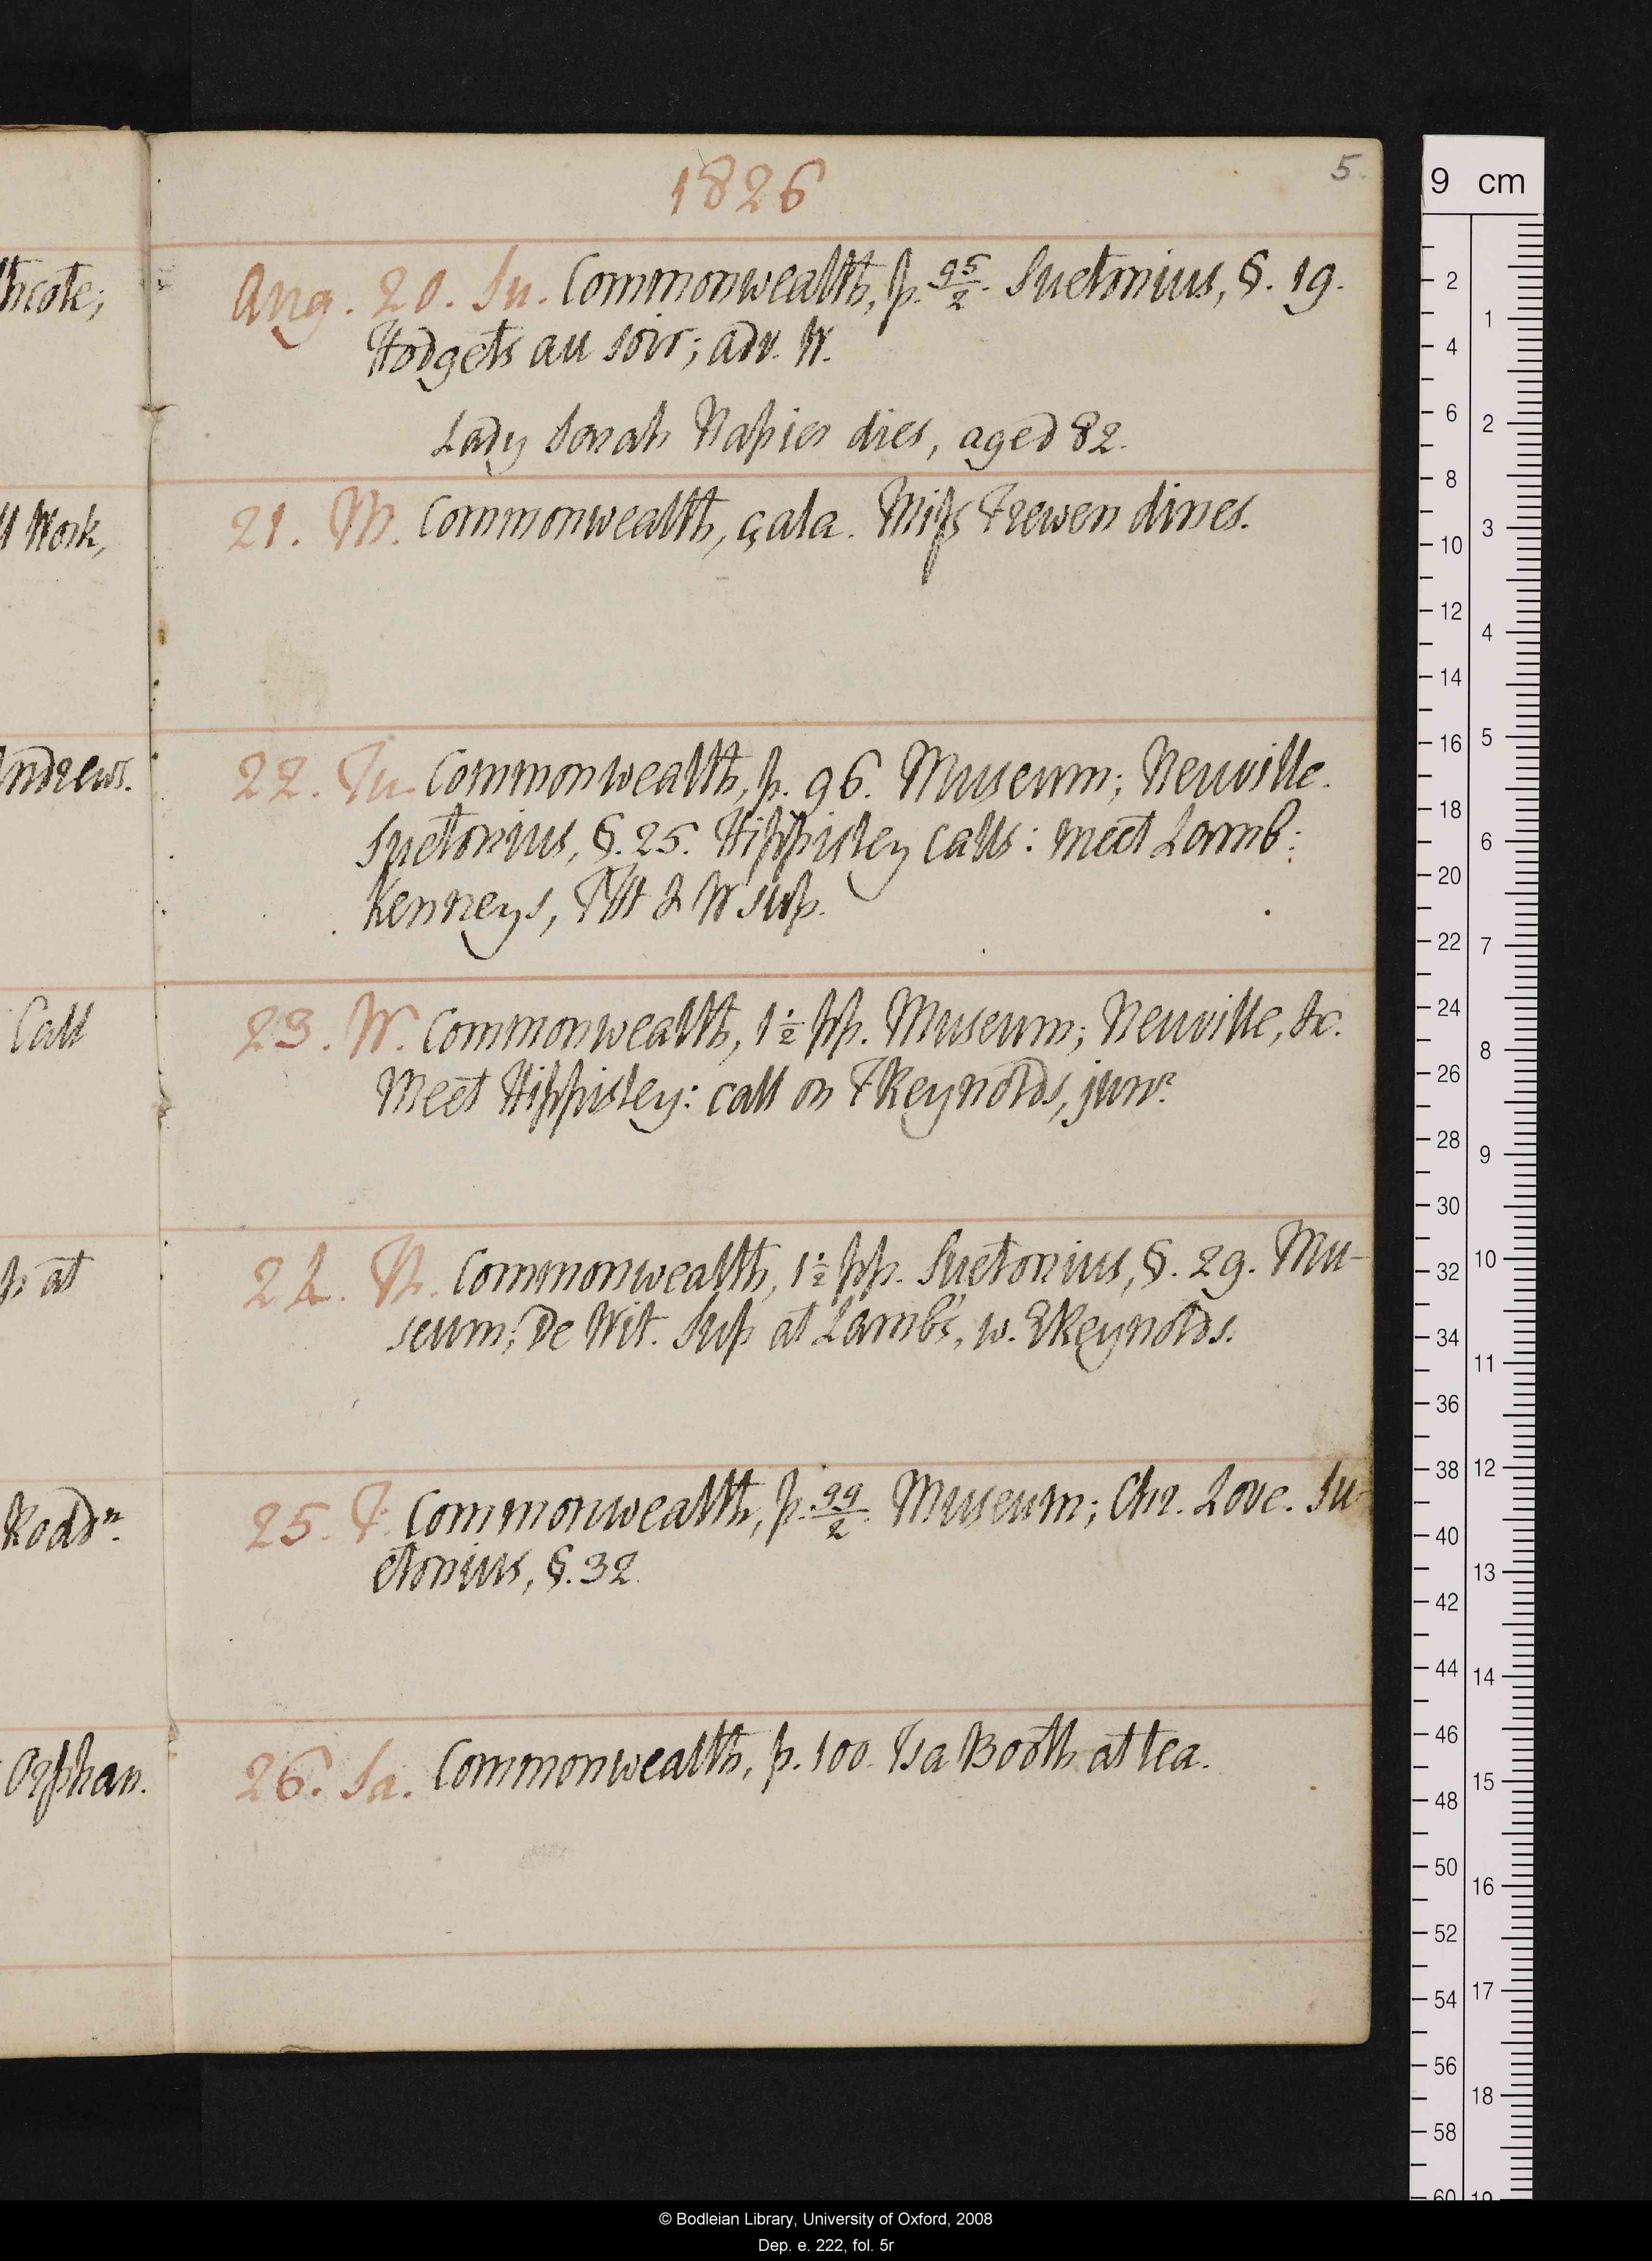 1826
5.
thcote;
Aug. 20. Su. Commonwealth, p. 95/2. Suetonius, §. 19.
Hodgets au soir; adv. W.
Lady Sarah Napier dies, aged 82.
ll Work,
21. M. Commonwealth, çala. Miss Frewen dines.
Andrews.
22. Tu. Commonwealth, p. 96. Museum; Neuville.
Suetonius, §. 25. Hippisley calls: meet Lamb:
Kenneys, TH & W sup.
Call
23. W. Commonwealth, 1½ pp. Museum; Neuville, &c.
Meet Hippisley: call on FReynolds, junr.
p at
24. Th. Commonwealth, 1½ pp. Suetonius, §. 29. Mu-
seum; De Wit. Sup at Lamb's, w. EReynolds.
Roddn.
25. F. Commonwealth, p. 99/2. Museum; Chr. Love. Su-
etonius, §. 32.
Orphan.
26. Sa. Commonwealth, p. 100. Isa Booth at tea.
9 cm
2
4
6
8
10
12
14
16
18
20
22
24
26
28
30
32
34
36
38
40
42
44
46
48
50
52
54
56
58
60
1
2
3
4
5
6
7
8
9
10
11
12
13
14
15
16
17
18
19
© Bodleian Library, University of Oxford, 2008
Dep. e. 222, fol. 5r